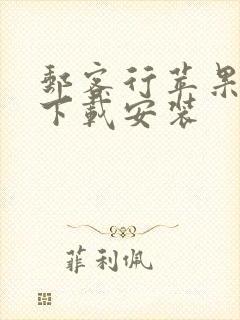 邮客行苹果
下载安装
菲利佩